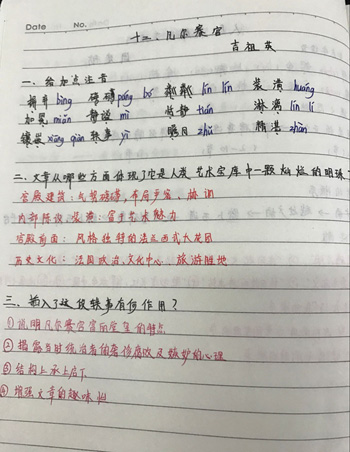 Date No.
十二、凡尔赛宫
吉祖英
一、给加点注音
摒弃 bìng 磅礴 páng bó 粼粼 lín lín 装潢 huáng
加冕 miǎn 静谧 mì 恬静 tián 淋漓 lín lí
镶嵌 xiāng qiàn 轶事 yì 瞩目 zhǔ 精湛 zhàn
二、文章从哪些方面体现了它是人类艺术宝库中一颗灿烂的明珠
宫殿建筑：气势磅礴，布局严密、协调
内部陈设、装潢：富于艺术魅力
宫殿前面：风格独特的法兰西式大花园
历史文化：法国政治、文化中心 旅游胜地
三、插入了这段轶事有何作用？
①说明凡尔赛宫富丽堂皇的特点
②揭露当时统治者的腐败及嫉妒的心理
③结构上承上启下
④增强文章的趣味性